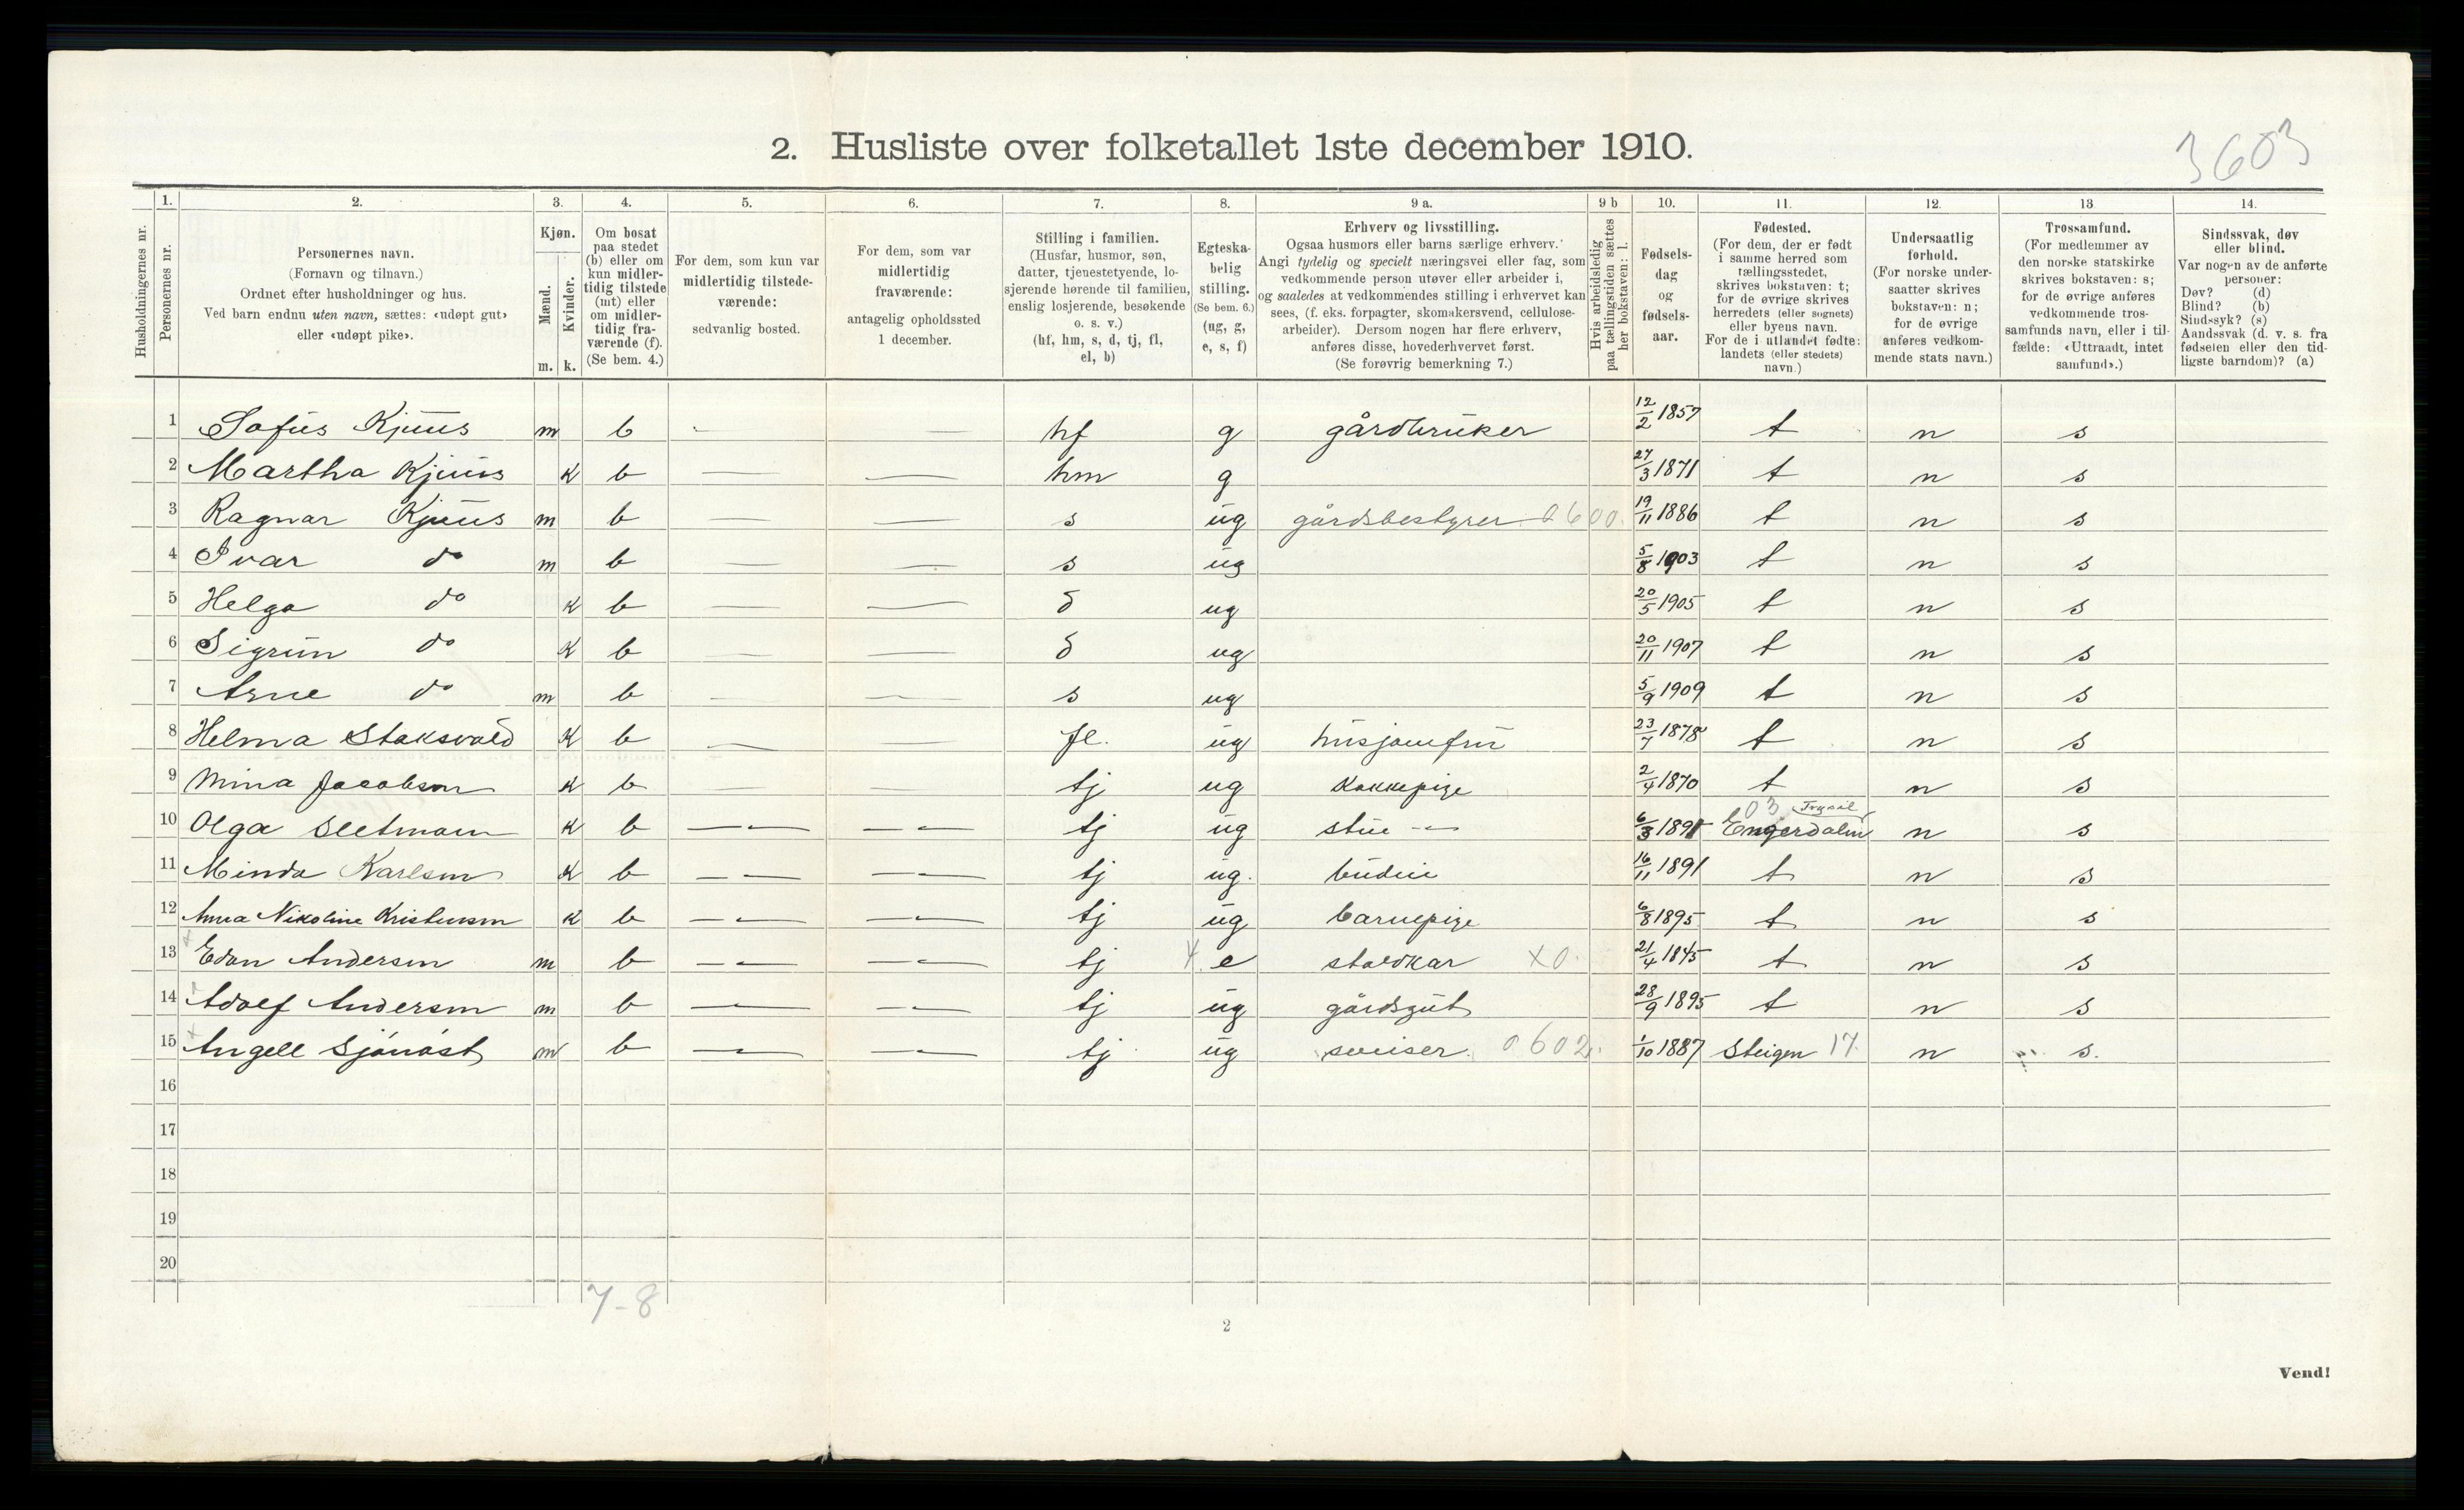 2. Husliste over folketallet 1ste december 1910.
3603
Husholdningernes nr.
1. Personernes nr.
2. Personernes navn.
(Fornavn og tilnavn.)
Ordnet efter husholdninger og hus.
Ved barn endnu uten navn, sættes: «udøpt gut»
eller «udøpt pike».
3. Kjøn.
Mænd. m.
Kvinder. k.
4. Om bosat
paa stedet
(b) eller om
kun midler-
tidig tilstede
(mt) eller
om midler-
tidig fra-
værende (f).
(Se bem. 4.)
5. For dem, som kun var
midlertidig tilstede-
værende:
sedvanlig bosted.
6. For dem, som var
midlertidig
fraværende:
antagelig opholdssted
1 december.
7. Stilling i familien.
(Husfar, husmor, søn,
datter, tjenestetyende, lo-
sjerende hørende til familien,
enslig losjerende, besøkende
o. s. v.)
(hf, hm, s, d, tj, fl,
el, b)
8. Egteska-
belig
stilling.
(Se bem. 6.)
(ug, g,
e, s, f)
9 a. Erhverv og livsstilling.
Ogsaa husmors eller barns særlige erhverv.
Angi tydelig og specielt næringsvei eller fag, som
vedkommende person utøver eller arbeider i,
og saaledes at vedkommendes stilling i erhvervet kan
sees, (f. eks. forpagter, skomakersvend, cellulose-
arbeider). Dersom nogen har flere erhverv,
anføres disse, hovederhvervet først.
(Se forøvrig bemerkning 7.)
9 b Hvis arbeidsledig
paa tællingstiden sættes
her bokstaven: l.
10. Fødsels-
dag
og
fødsels-
aar.
11. Fødested.
(For dem, der er født
i samme herred som
tællingsstedet,
skrives bokstaven: t;
for de øvrige skrives
herredets (eller sognets)
eller byens navn.
For de i utlandet fødte:
landets (eller stedets)
navn.)
12. Undersaatlig
forhold.
(For norske under-
saatter skrives
bokstaven: n;
for de øvrige
anføres vedkom-
mende stats navn.)
13 Trossamfund.
(For medlemmer av
den norske statskirke
skrives bokstaven: s;
for de øvrige anføres
vedkommende tros-
samfunds navn, eller i til-
fælde: «Uttraadt, intet
samfund».)
14. Sindssvak, døv
eller blind.
Var nogen av de anførte
personer:
Døv? (d)
Blind? (b)
Sindssyk? (s)
Aandssvak (d. v. s. fra
fødselen eller den tid-
ligste barndom)? (a)
1 Sofus Kjuus m b — — hf g gårdbruker 12/2 1857 t n s
2 Martha Kjuus k b — — hm g 27/3 1871 t n s
3 Ragnar Kjuus m b — — s ug gårdsbestyrer 0600. 19/11 1886 t n s
4 Ivar do m b — — s ug 5/8 1903 t n s
5 Helga do k b — — d ug 20/5 1905 t n s
6 Sigrun do k b — — d ug 20/11 1907 t n s
7 Arne do m b — — s ug 5/9 1909 t n s
8 Helma Staksvold k b — — fl. ug husjomfru 23/7 1878 t n s
9 Mina Jacobsen k b — — tj ug Kokkepige 2/4 1870 t n s
10 Olga Sletmoen k b — — tj ug stue -"- 6/3 1891 03 Trysil Engerdalen n s
11 Minda Karlsen k b — — tj ug. budeie 16/11 1891 t n s
12 Anna Nikoline Kristensen k b — — tj ug barnepige 6/8 1895 t n s
13 Edon Andersen m b — — tj e staldkar x0. 21/4 1845 t n s
14 Adolf Andersen m b — — tj ug gårdsgut 28/9 1895 t n s
15 Angell Sjånåst m b — — tj ug sveiser. 0602. 1/10 1887 Steigen 17. n s.
16
17
18
19
20
7-8
2
Vend!